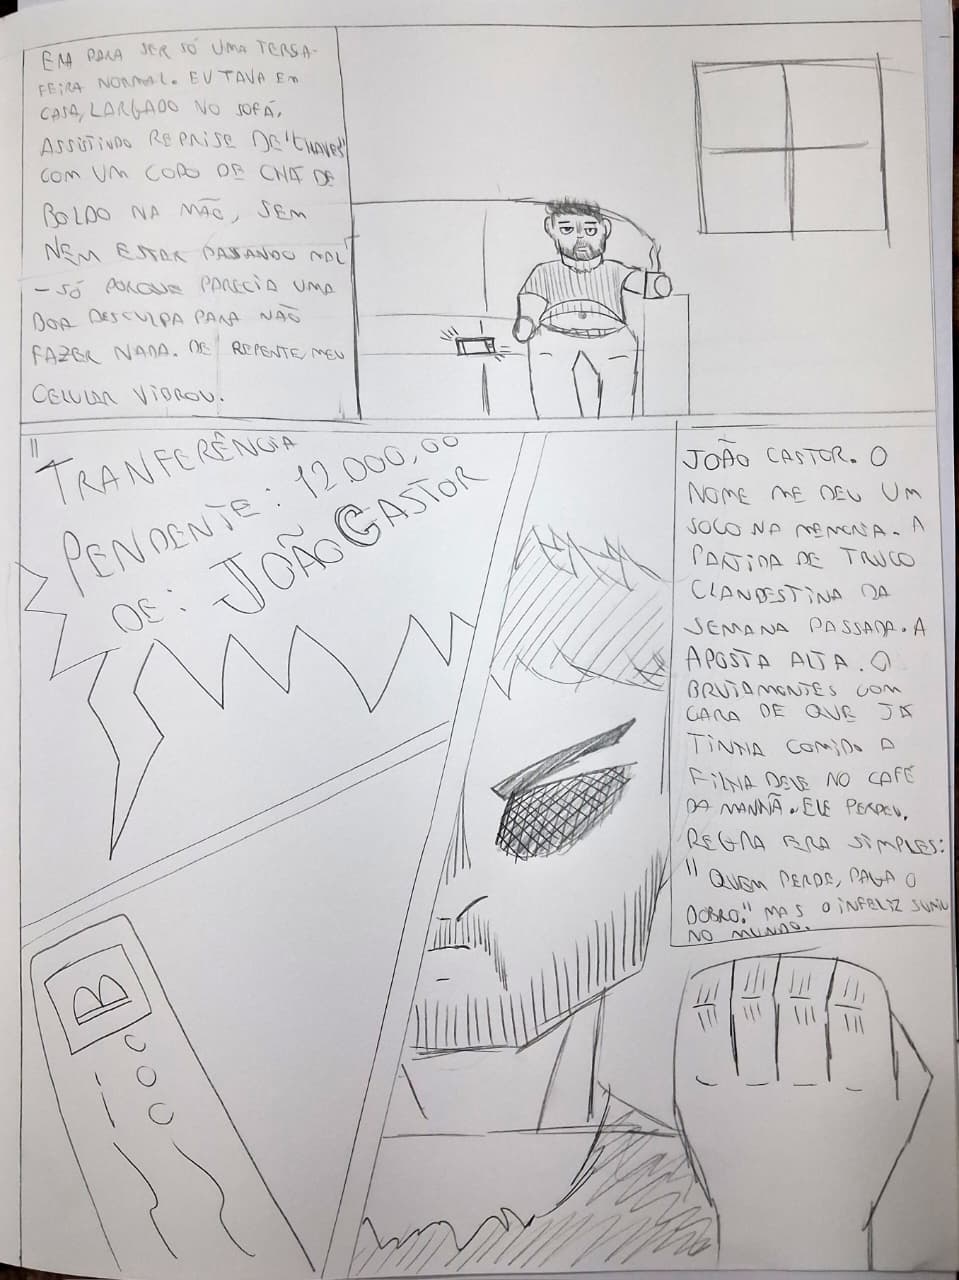 ERA PARA SER SÓ UMA TERSA-
FEIRA NORMAL. EU TAVA EM
CASA, LARGADO NO SOFÁ,
ASSISTINDO REPRISE DE "CHAVES"
COM UM COPO DE CHÁ DE
BOLDO NA MÃO, SEM
NEM ESTAR PASSANDO MAL
- SÓ PORQUE PARECIA UMA
BOA DESCULPA PARA NÃO
FAZER NADA. DE REPENTE, MEU
CELULAR VIBROU.
"TRANFERÊNCIA
PENDENTE: 12.000,00
DE: JOÃO CASTOR
JOÃO CASTOR. O
NOME ME DEU UM
SOCO NA MEMORIA. A
PARTIDA DE TRUCO
CLANDESTINA DA
SEMANA PASSADA. A
APOSTA ALTA. O
BRUTAMONTES COM
CARA DE QUE JÁ
TINHA COMIDO A
FILHA DELE NO CAFÉ
DA MANHÃ. ELE PERDEU.
REGRA ERA SIMPLES:
"QUEM PERDE, PAGA O
DOBRO." MAS O INFELIZ SUMIU
NO MUNDO.
B